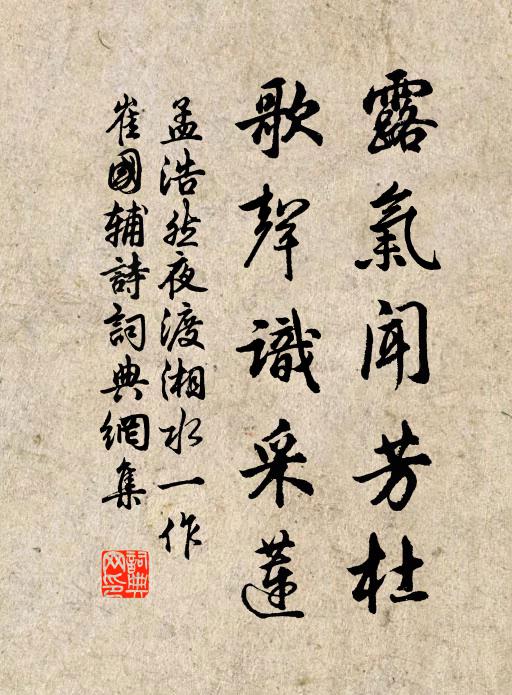 露氣聞芳杜
歌聲識采蓮
孟浩然夜渡湘水一作
崔國辅詩詞典網集
詞典网印